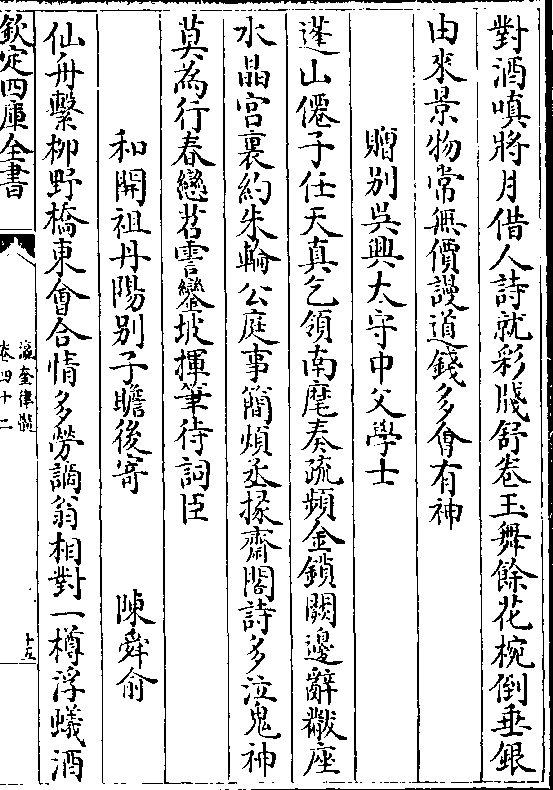 對酒嗔將月借人詩就彩牋舒卷玉舞餘花椀倒垂銀
由來景物常無價謾道錢多會有神
贈别吳興太守中父學士
蓬山僊子任天真乞領南麾奏疏頻金鎖闕邊辭黻座
水晶宫裏約朱輪公庭事簡煩丞掾齋閣詩多泣鬼神
莫為行春戀苕霅鑾坡揮筆待詞臣
和開祖丹陽别子瞻後寄 陳舜俞
仙舟繫柳野橋東會合情多勞謫翁相對一樽浮蟻酒
欽定四庫全書
瀛奎律髓
卷四十二
十五